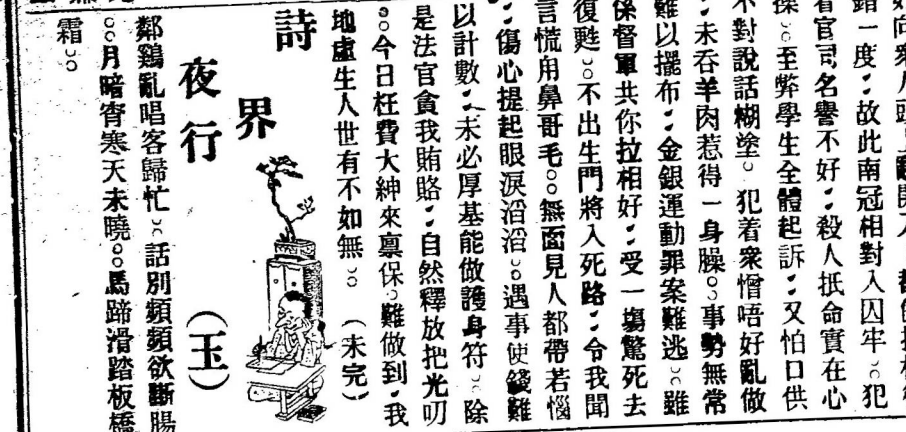 好向衆
一度。故此南冠相對入囚牢。犯
着官司名譽不好。殺人抵命實在心
操。至弊學生全體起訴。又怕口供
不對說話糊塗。犯着衆憎唔好亂做
。未吞羊肉惹得一身臊。事勢無常
難以擺布。金銀運動罪案難逃。雖
保督軍共你拉相好。受一塲驚死去
復甦。不出生門將入死路。令我聞
言慌用鼻哥毛。無面見人都帶若惱
。傷心提起眼淚滔滔。遇事使錢難
以計數。未必厚基能做護身符。除
是法官貪我賄賂。自然釋放把光叨
。今日枉費大紳來禀保。難做到。我
地虛生人世有不如無。(未完)
詩界
夜行(玉)
鄰鷄亂唱客歸忙。話別頻頻欲斷腸
。月暗宵寒天未曉。馬蹄滑踏板橋
霜。